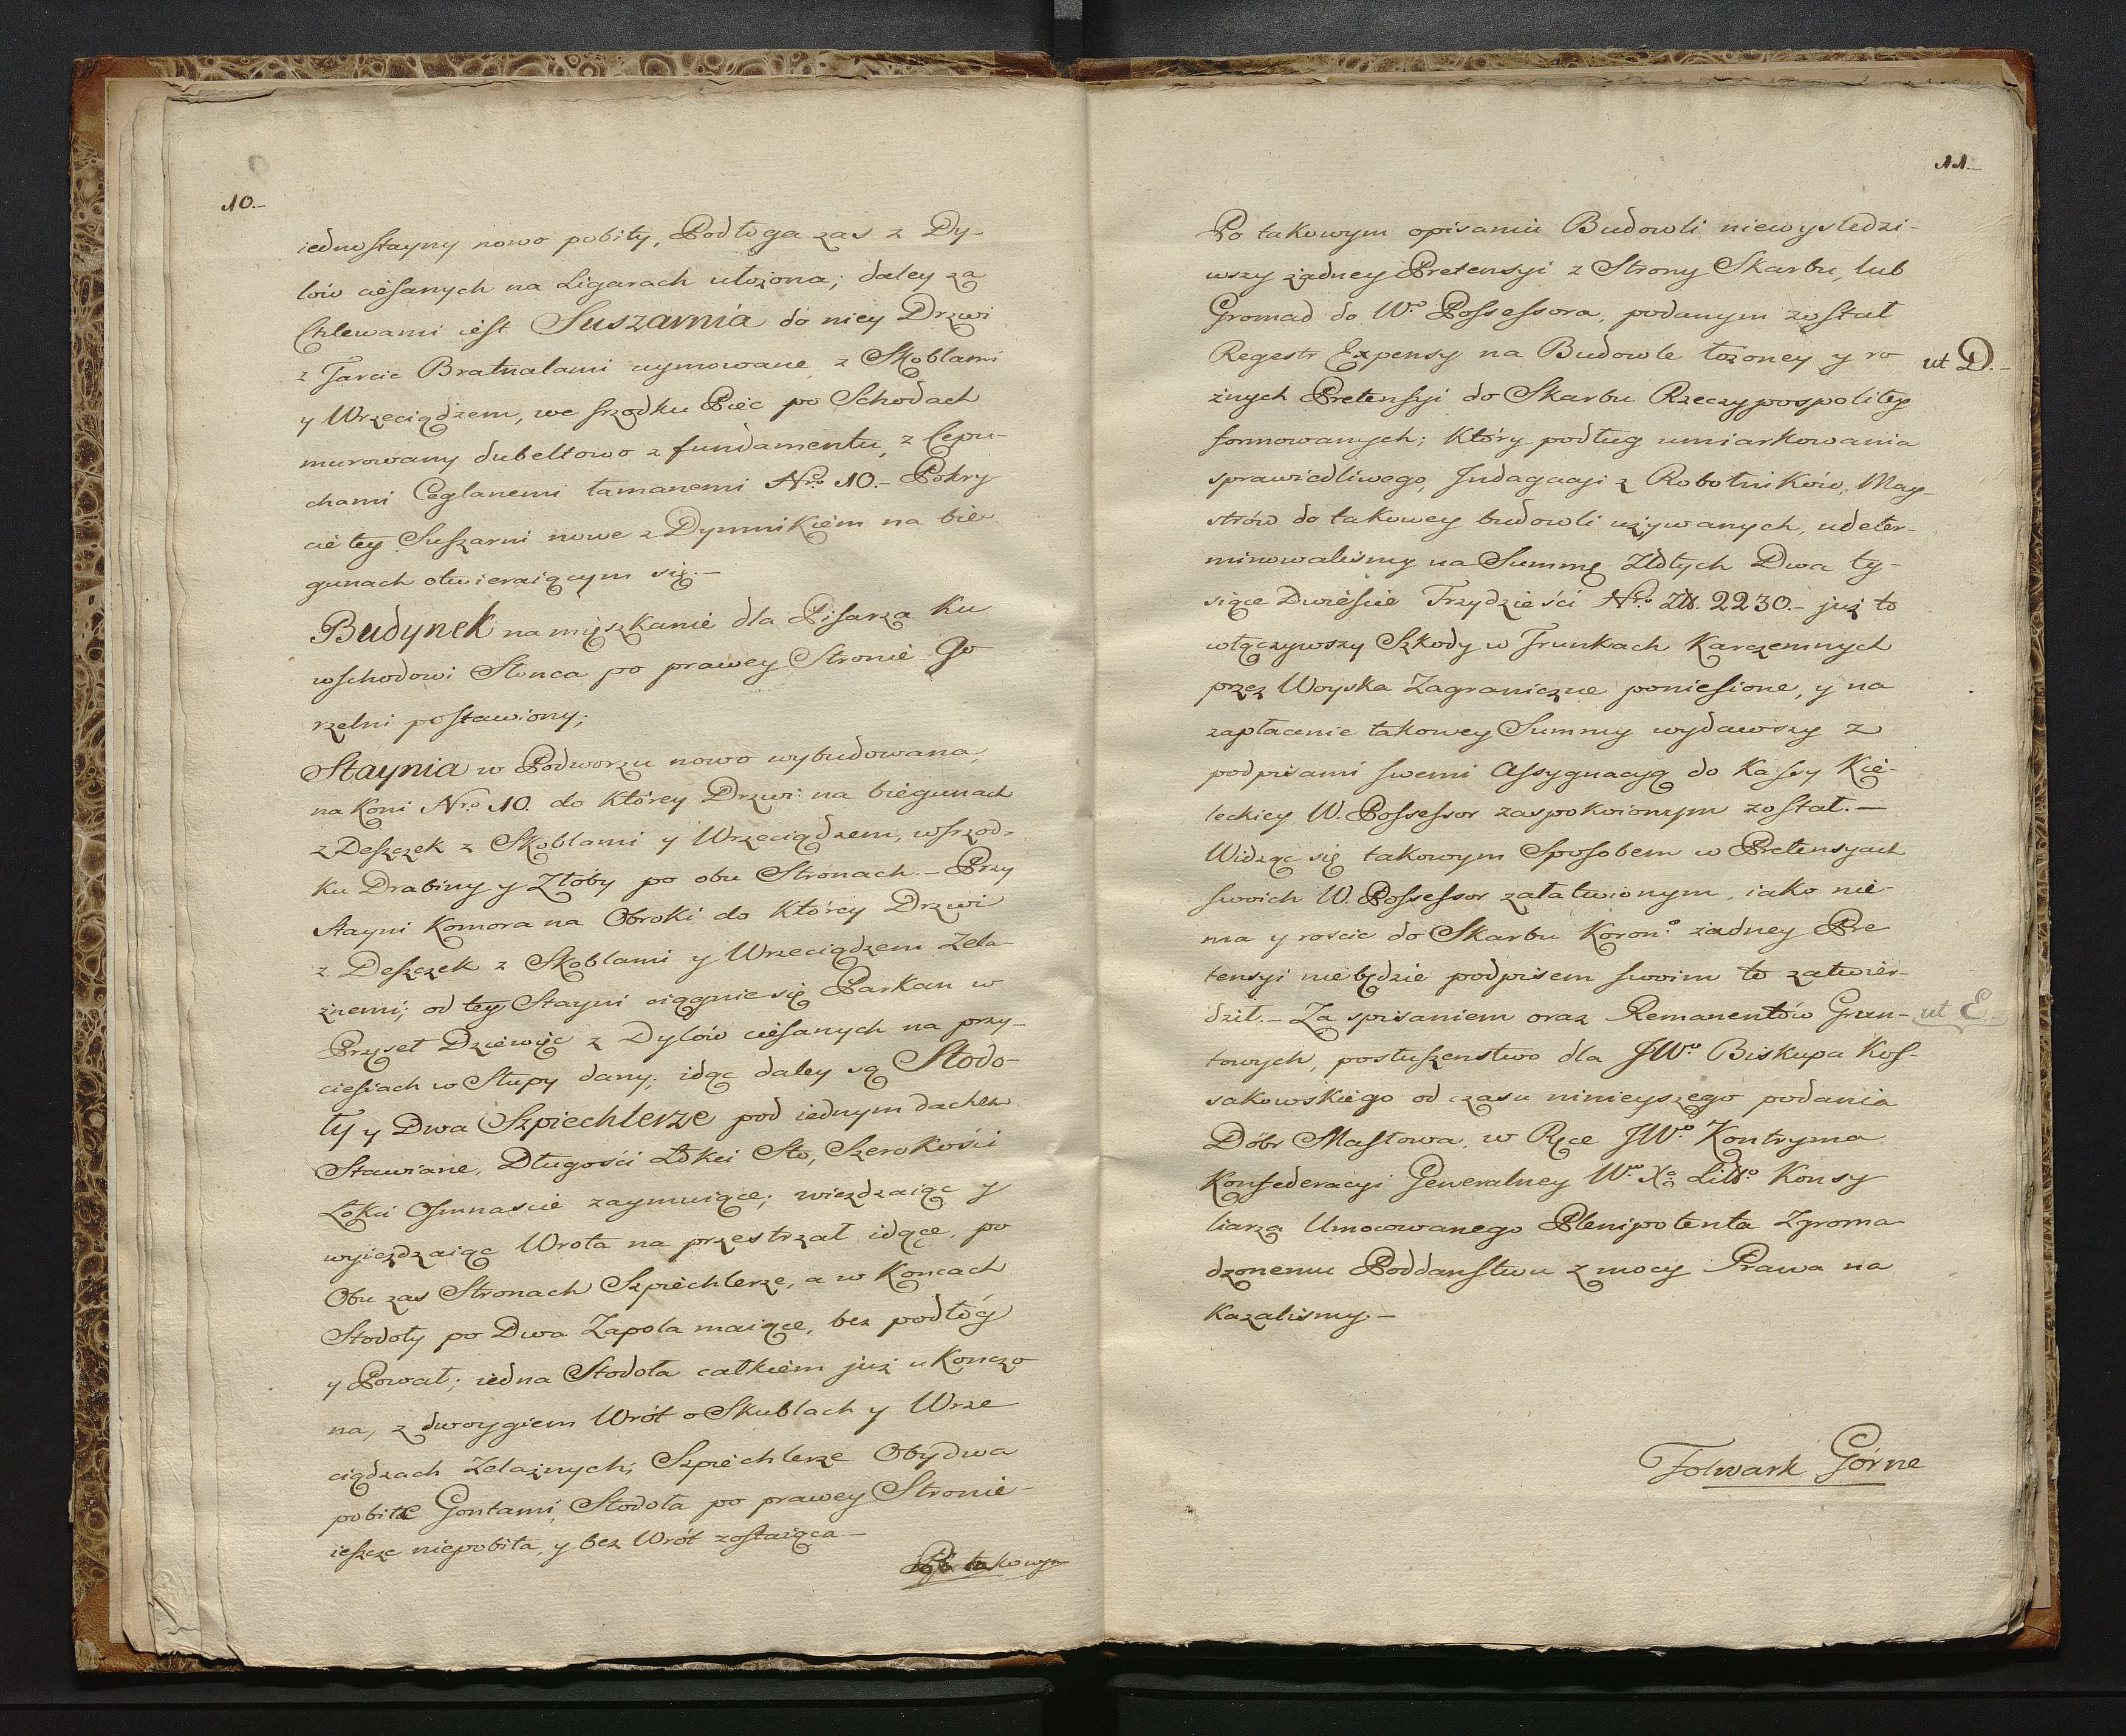 10.-
iednostayny nowo pobity, Podłoga zas z Dy-
lów ciesanych na Ligarach ułożona; daley za
Chlewami iest Suszarnia do niey Drzwi
z Tarcic Bratnalami uymowane z Skoblami
y Wrzeciądzem, we srzodku Piec po Schodach
murowany dubeltowo z fundamentu, z Cepu-
chami Ceglanemi łamanemi Nro 10.- Pokry
cie tey Suszarni nowe z Dymnikiem na bie
gunach otwieraiącym się.-
Budynek na mięszkanie dla Pisarza ku
wschodowi Słonca po prawey Stronie Go
rzelni postawiony;
Staynia w Podworzu nowo wybudowana,
na Koni Nro 10. do Którey Drzwi na biegunach
z Deszczek z Skoblami y Wrzeciądzem, wsrzod-
ku Drabiny y Złoby po obu Stronach.- Przy
Stayni Komora na Obroki do Którey Drzwi
z Deszczek z Skoblami y Wrzeciądzem Zela-
znemi; od tey Stayni ciągnie się Parkan w
Przyseł Dziewięc z Dylów ciesanych na przy-
ciesiach w Słupy dany; idąc daley są Stodo-
ły y Dwa Szpiechlerze pod iednym dachem
Stawiane, Długości Łokci Sto, Szerokości
Łokci Osmnascie zaymuiące; wiezdzaiąc y
wyiezdzaiąc Wrota na przestrzał idące, po
Obu zas Stronach Szpiechlerze, a w Koncach
Stodoły po Dwa Zapola maiące, bez podłóg
y Pował; iedna Stodoła całkiem już ukonczo
na, z dwoygiem Wrót o Skublach y Wrze
ciądzach Zelaznych; Szpiechlerze Obydwa
pobite Gontami, Stodoła po prawey Stronie-
ieszcze niepobita, y bez Wrót zostaiąca-
Po takowym
11.-
Po takowym opisaniu Budowli niewysledzi-
wszy żadney Pretensyi z Strony Skarbu, lub
Gromad do Wo Possessora, podanym został
Regestr Expensy na Budowle łożoney y ro ut D.-
żnych Pretensyi do Skarbu Rzeczypospolitey
formowanych; Który podług umiarkowania
sprawiedliwego, Indagacyi z Robotników, May-
strów do takowey budowli używanych, udeter-
minowalismy na Summę Złotych Dwa ty-
siące Dwieście Trzydzieści Nro Złł. 2230.- już to
włączywszy Szkody w Trunkach Karczemnych
przez Woyska Zagraniczne poniesione, y na
zapłacenie takowey Summy wydawszy z
podpisami swemi Assygnacyą do Kassy Kie-
leckiey W. Possessor zaspokoionym został.-
Widząc się takowym Sposobem w Pretensyach
swoich W. Possessor załatwionym, iako nie-
ma y roscic do Skarbu Korono żadney Pre
tensyi niebędzie podpisem swoim to zatwier-
dził.- Za spisaniem oraz Remanentów Grun- ut E.
towych, posłuszenstwo dla JWo Biskupa Kos-
sakowskiego od czasu ninieyszego podania
Dóbr Masłowa, w Ręce JWo Kontryma
Konfederacyi Generalney Wo Xa Litto Konsy
liarza Umocowanego Plenipotenta Zgroma-
dzonemu Poddanstwu z mocy Prawa na
kazalismy.-
Folwark Górne